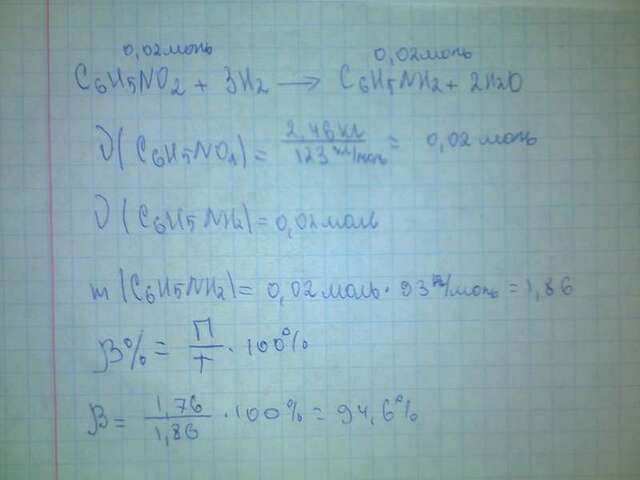 0,02моль 0,02моль
C6H5NO2 + 3H2 → C6H5NH2 + 2H2O
ν(C6H5NO2) = 2,46кг / 123 кг/моль = 0,02 моль
ν(C6H5NH2) = 0,02моль
m(C6H5NH2) = 0,02 моль · 93 кг/моль = 1,86
β% = П/Т · 100%
β = 1,76/1,86 · 100% = 94,6%